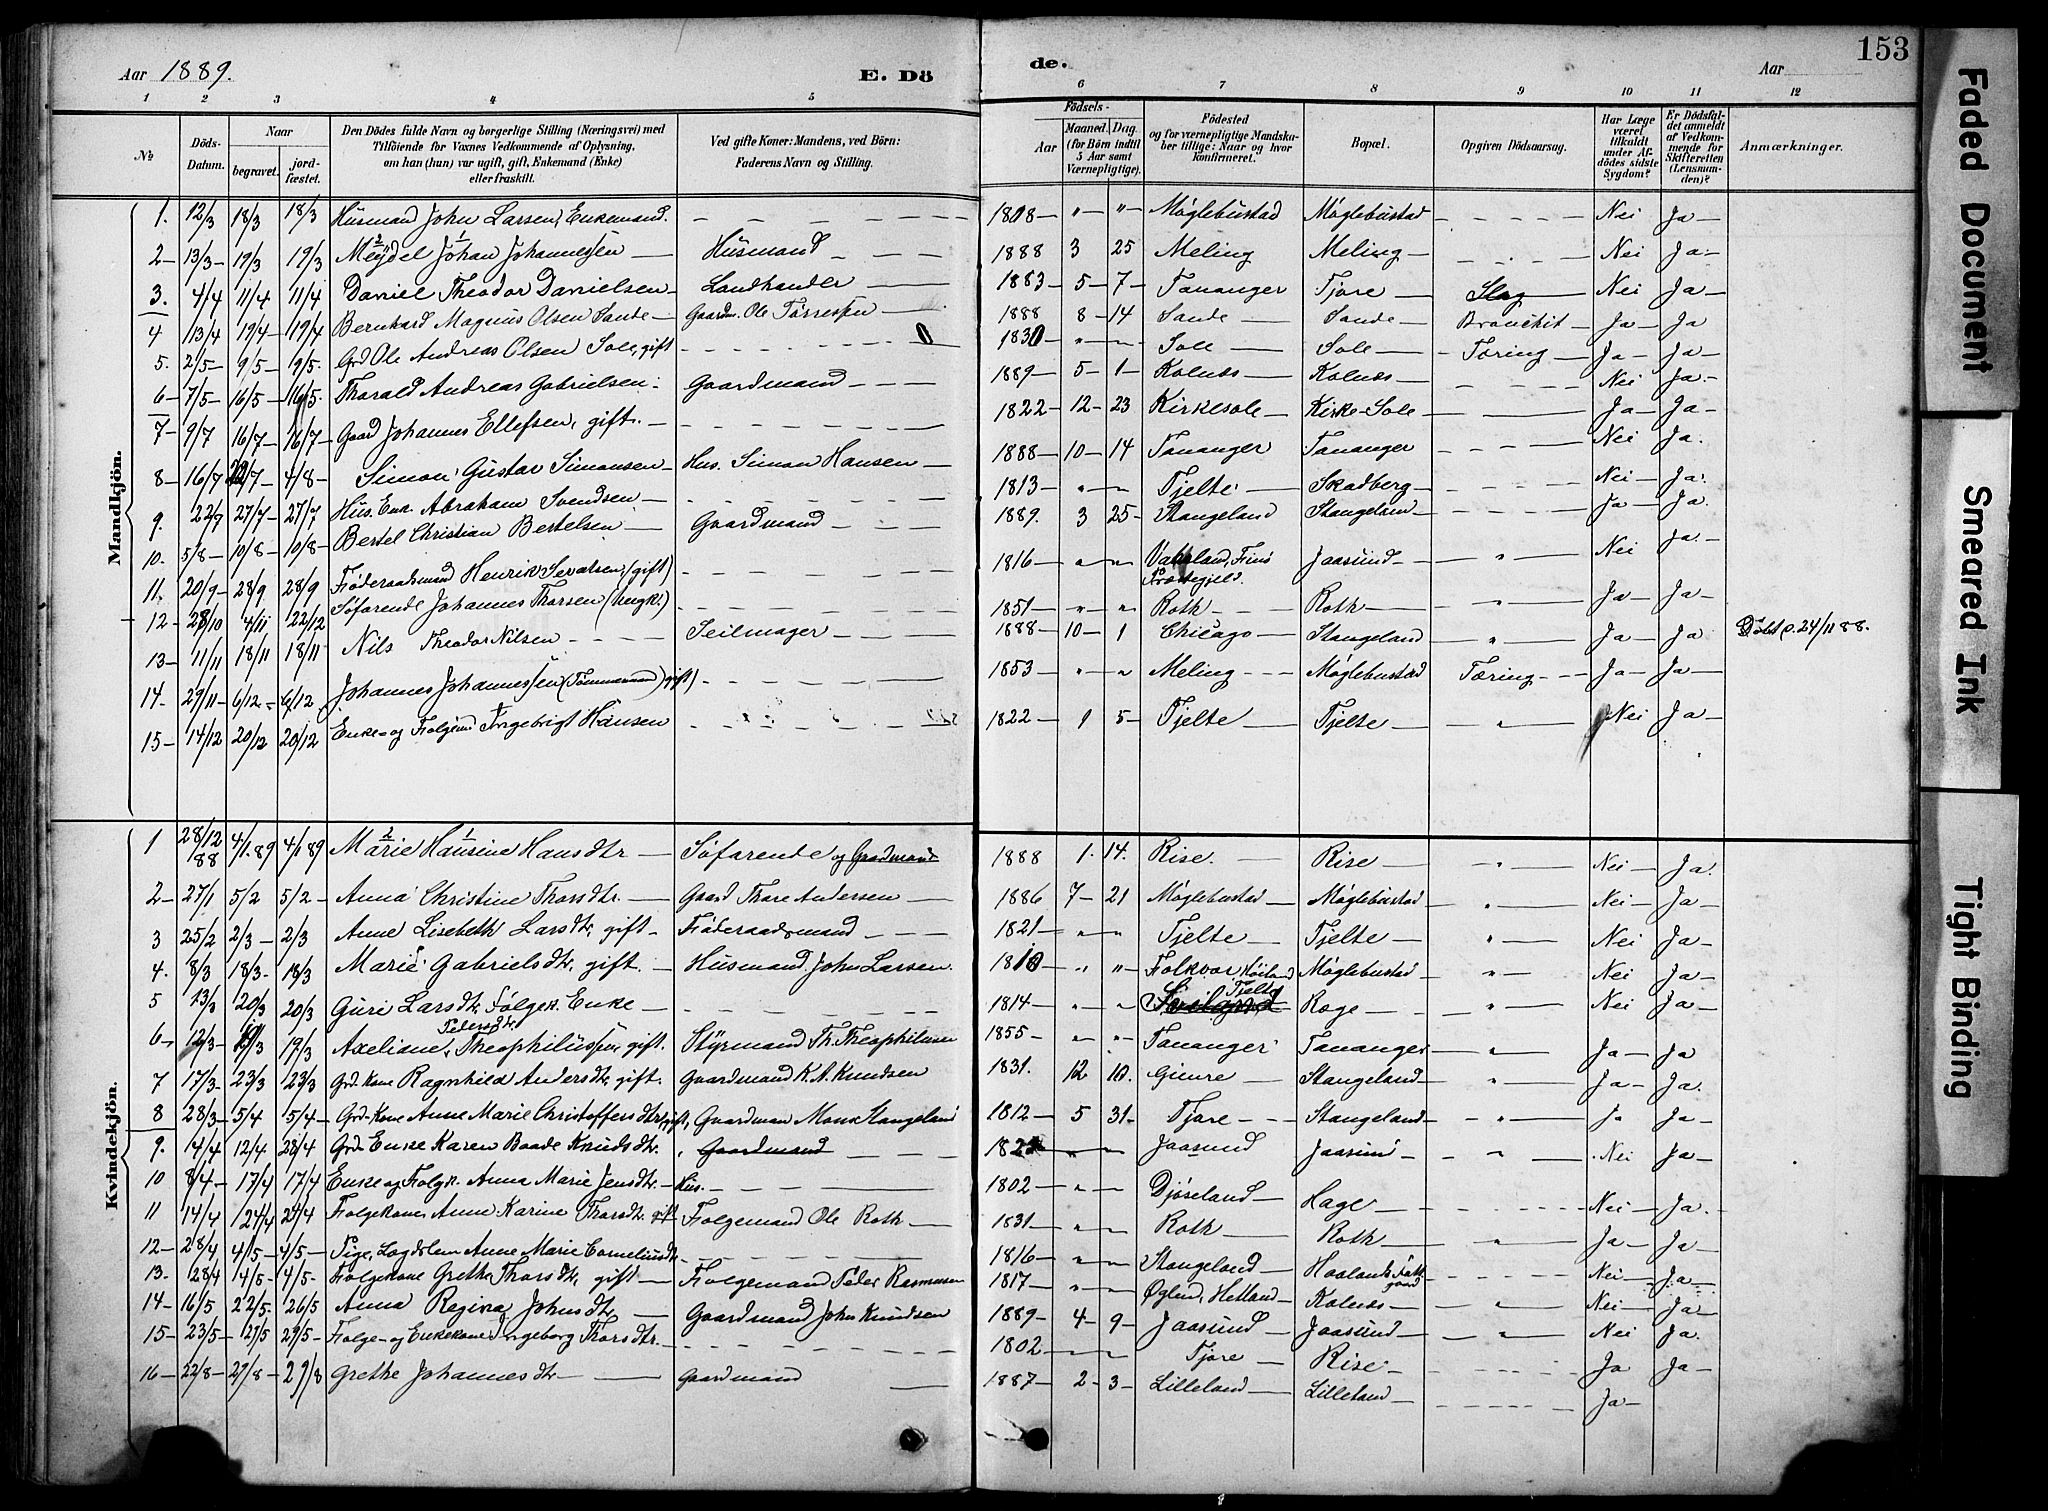 Aar 1889. E. Dö de. Aar 153
1 2 3 4 5 6 7 8 9 10 11 12
№ Döds-Datum. Naar begravet. jordfæstet. Den Dödes fulde Navn og borgerlige Stilling (Næringsvei) med Tilföiende for Voxnes Vedkommende af Oplysning, om han (hun) var ugift, gift, Enkemand (Enke) eller fraskilt. Ved gifte Koner: Mandens, ved Börn: Faderens Navn og Stilling. Födsels- Aar Maaned. Dag. (for Börn indtil 5 Aar samt Værnepligtige). Födested og for værnepligtige Mandskaber tillige: Naar og hvor konfirmeret. Bopæl. Opgiven Dödsaarsag. Har Læge været tilkaldt under Afdödes sidste Sygdom? Er Dödsfaldet anmeldt af Vedkommende for Skifteretten (Lensmanden)? Anmærkninger.
Mandkjön.
1. 12/3 18/3 18/3 Husmand John Larsen, Enkemand. 1808 — " — " — Møglebustad Møglebustad Nei Ja —
2 — 13/3 — 19/3 19/3 Meydel Johan Johannessen — Husmand 1888 3 25 Meling Meling Nei Ja —
3. 4/4 11/4 11/4 Daniel Theodor Danielsen — Landhandler 1883 — 5 — 7 — Tananger Tjore — Slag Nei Ja —
4 13/4 19/4 — 19/4 Bernhard Magnus Olsen Sande — Gaardm. Ole Tørressen — 1888 8 — 14 Sande — Sande — Bronchit — Ja — Ja
5. 2/5 — 9/5 — 9/5. Grd Ole Andreas Olsen Sole, gift 1830 — " — " — Sole — Sole — Tæring — Ja — Ja —
6 — 7/5 — 16/5 — 16/5. Thorald Andreas Gabrielsen Gaardmand 1889 — 5 — 1 — Kolnæs — Kolnæs — Nei Ja. —
7 — 9/7 16/7 — 16/7 — Gaard Johannes Ellefsen, gift. 1822 — 12 — 23 Kirkesole — Kirke-Sole Ja — Ja —
8 — 16/7 20/7 — 4/8 — Simon Gustav Simonsen — Hus. Simon Hansen — 1888 — 10 — 14 Tananger Tananger Nei Ja.
9. 22/7 27/7 — 27/7 Hus. Enk. Abraham Svendsen — 1813 — " — " Tjelte — Skadberg — Nei — Ja.
10. 5/8 — 10/8 — 10/8 — Bertel Christian Bertelsen — Gaardmand 1889. 3 25 — Stangeland Stangeland — Ja — Ja.
11. 20/9 — 28/9 28/9 Føderaadsmand Henrik Sevatsen, (gift) 1816 — " " — Finø Præstegjeld. Jaasund — " — Nei Ja. —
12 — 28/10 4/11 22/12 Søfarende Johannes Thorsen (Ungk.) 1851 — " — " Roth — Roth — " — Ja — Ja —
13 — 11/11 18/11 18/11 Nils Theodor Nilsen Seilmager 1888 — 10 — 1 Chicago — Stangeland " — Ja — Ja Døbt d. 24/11 88.
14. 29/11 — 6/12 — 6/12 Johannes Johannessen (Tømmermand) gift) 1853 " — " Meling — Møglebustad Tæring — Ja — Ja —
15 — 14/12 20/12 20/12 Enke- og Folgem Ingebrigt Hansen 1822 — 1 5 — Tjelte — Tjelte — " — Nei Ja —
Kvindekjön.
1 28/12 88 4/1.89 4/1 89 Marie Hansine Hansdtr — Søfarende og Gaardmand 1888 1. 14. Rise. — Rise — " — Nei — Ja.
2 — 27/1 5/2 5/2 — Anna Christine Thorsdtr. — Gaard Thore Andersen — 1886 7 — 21 Møglebustad — Møglebustad " — Nei — Ja —
3 25/2 2/3 — 2/3 Anne Lisebeth Larsdtr, gift — Føderaadsmand 1821 — " — " Tjelte — Tjelte — " — Nei Ja —
4. 8/3 18/3 — 18/3 Marie Gabrielsdtr. gift. — Husmand John Larsen. 1810 " — " — Folkvor, Høiland Møglebustad — " — Nei Ja —
5 13/3 20/3 20/3 Guri Larsdtr, Følgek. Enke — 1814 — " — " Tjelte Ræge — " — Nei Ja —
6 — 12/3 — 19/3 19/3 Axeliane Pedersdtr. Theophilussen, gift. Styrmand Th. Theophilussen 1855 — " — " — Tananger Tananger — " — Ja — Ja
7 17/3 23/3 23/3 Grd. Kone Ragnhild Andersdtr, gift. Gaardmand K. A. Knudsen 1831. 12 10. Gimre — Stangeland — " — Ja — Ja.
8 28/3 5/4 5/4 — Grd-Kone Anne Marie Christoffersdtr, gift, Gaardman Mons Stangeland 1812 — 5 31 — Tjore — Stangeland — " — Ja Ja —
9. 14/4 12/4 28/4 Grd-Enke Karen Baade Knudsdtr. Gaardmand Jaasund Jaasund — " — Nei Ja —
10 8/4 — 17/4 17/4 Enke og Folgk. Anna Marie Jensdtr. — Hus. 1802 — " — Djøseland — Hage — Nei — Ja.
11 14/4 24/4 24/4 Folgekone Anne Karine Thorsdtr. gift — Folgemand Ole Roth — 1831 — " — " Roth — Roth — " — Ja — Ja —
12 — 28/4 4/5 — 4/5 — Pige, Lægdslem Anne Marie Corneliusdtr. 1816 — " — " Stangeland — Haaland Nei — Ja —
13. 28/4 14/5 — 4/5. Folgekone Grethe Thorsdtr gift — Folgemand Peder Rasmussen 1817 — " — Øglend, Hetland — Kolnæs — " — Nei — Ja —
14 — 16/5 22/5 26/5 Anna Regina Johnsdtr — Gaardmand John Knudsen 1889 — 4 — 9 — Jaasund — Jaasund — " — Nei Ja.
15 — 23/5 29/5 29/5 — Folge- og Enkekone Ingeborg Thorsdtr. — 1802 — Tjore — Rise — Ja Ja —
16 — 22/8 — 29/8 — 29/8 Grethe Johannesdtr — Gaardmand 1887 — 2 — 3 — Lilleland — Lilleland Ja —
Faded Document
Smeared Ink
Tight Binding